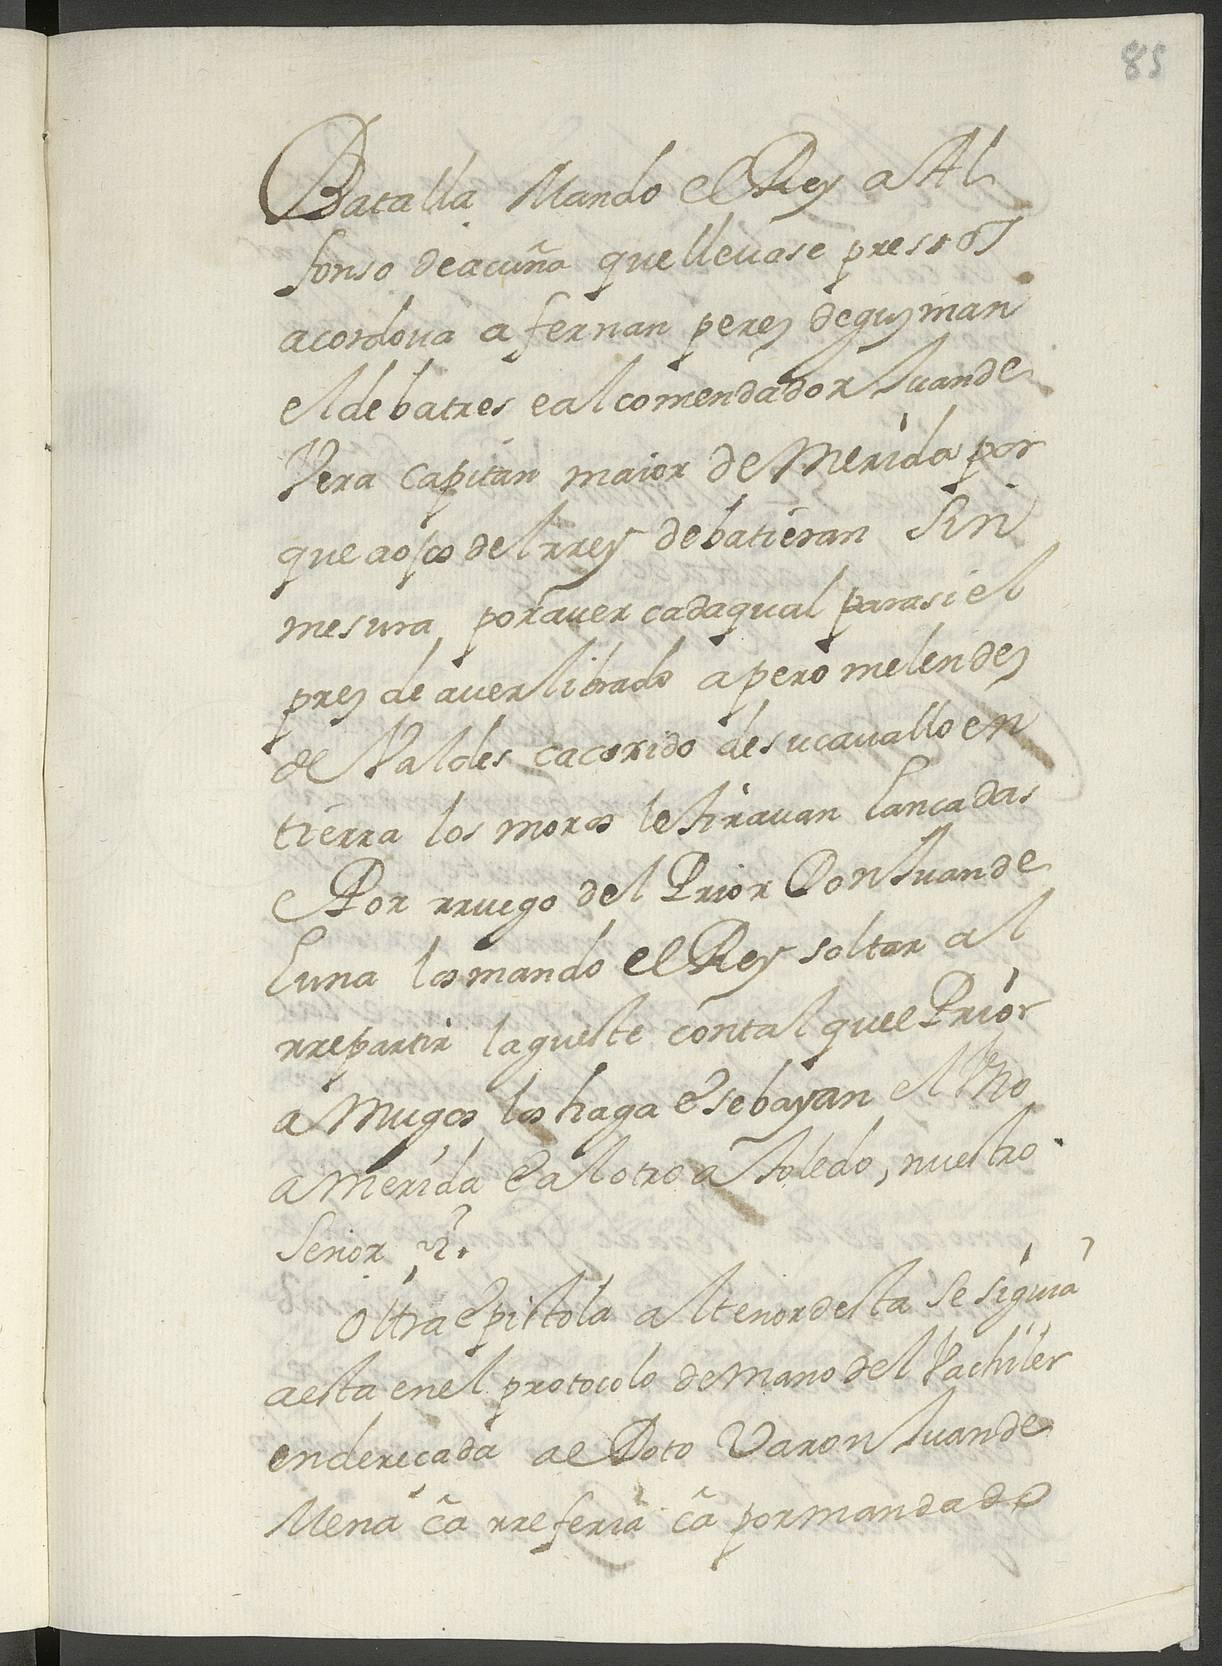 85
Batalla Mando el Rey a Al
fonso de acuña que llevase presos
a cordova a fernan perez de guzman
el de batres e al comendador Juan de
Vera capitan maior de Merida por
que a ojos del rrey debatieran sin
mesura, por aver cada qual para si el
prez de aver librado a pero melendez
de Valdes ca corrido de su cavallo en
tierra los moros le tiravan lancadas
e Por rruego del Prior Don Juan de
Luna los mando el Rey soltar al
rrepartir la gueste con tal que el Prior
amigos los haga e se bayan el Vno
a Merida e al otro a toledo, nuestro
Señor
Otra epistola al tenor desta se siguia
a esta en el protocolo de mano del Vachiler
enderecada a el Doto Varon Juan de
Mena ca rreferia ca por mandado